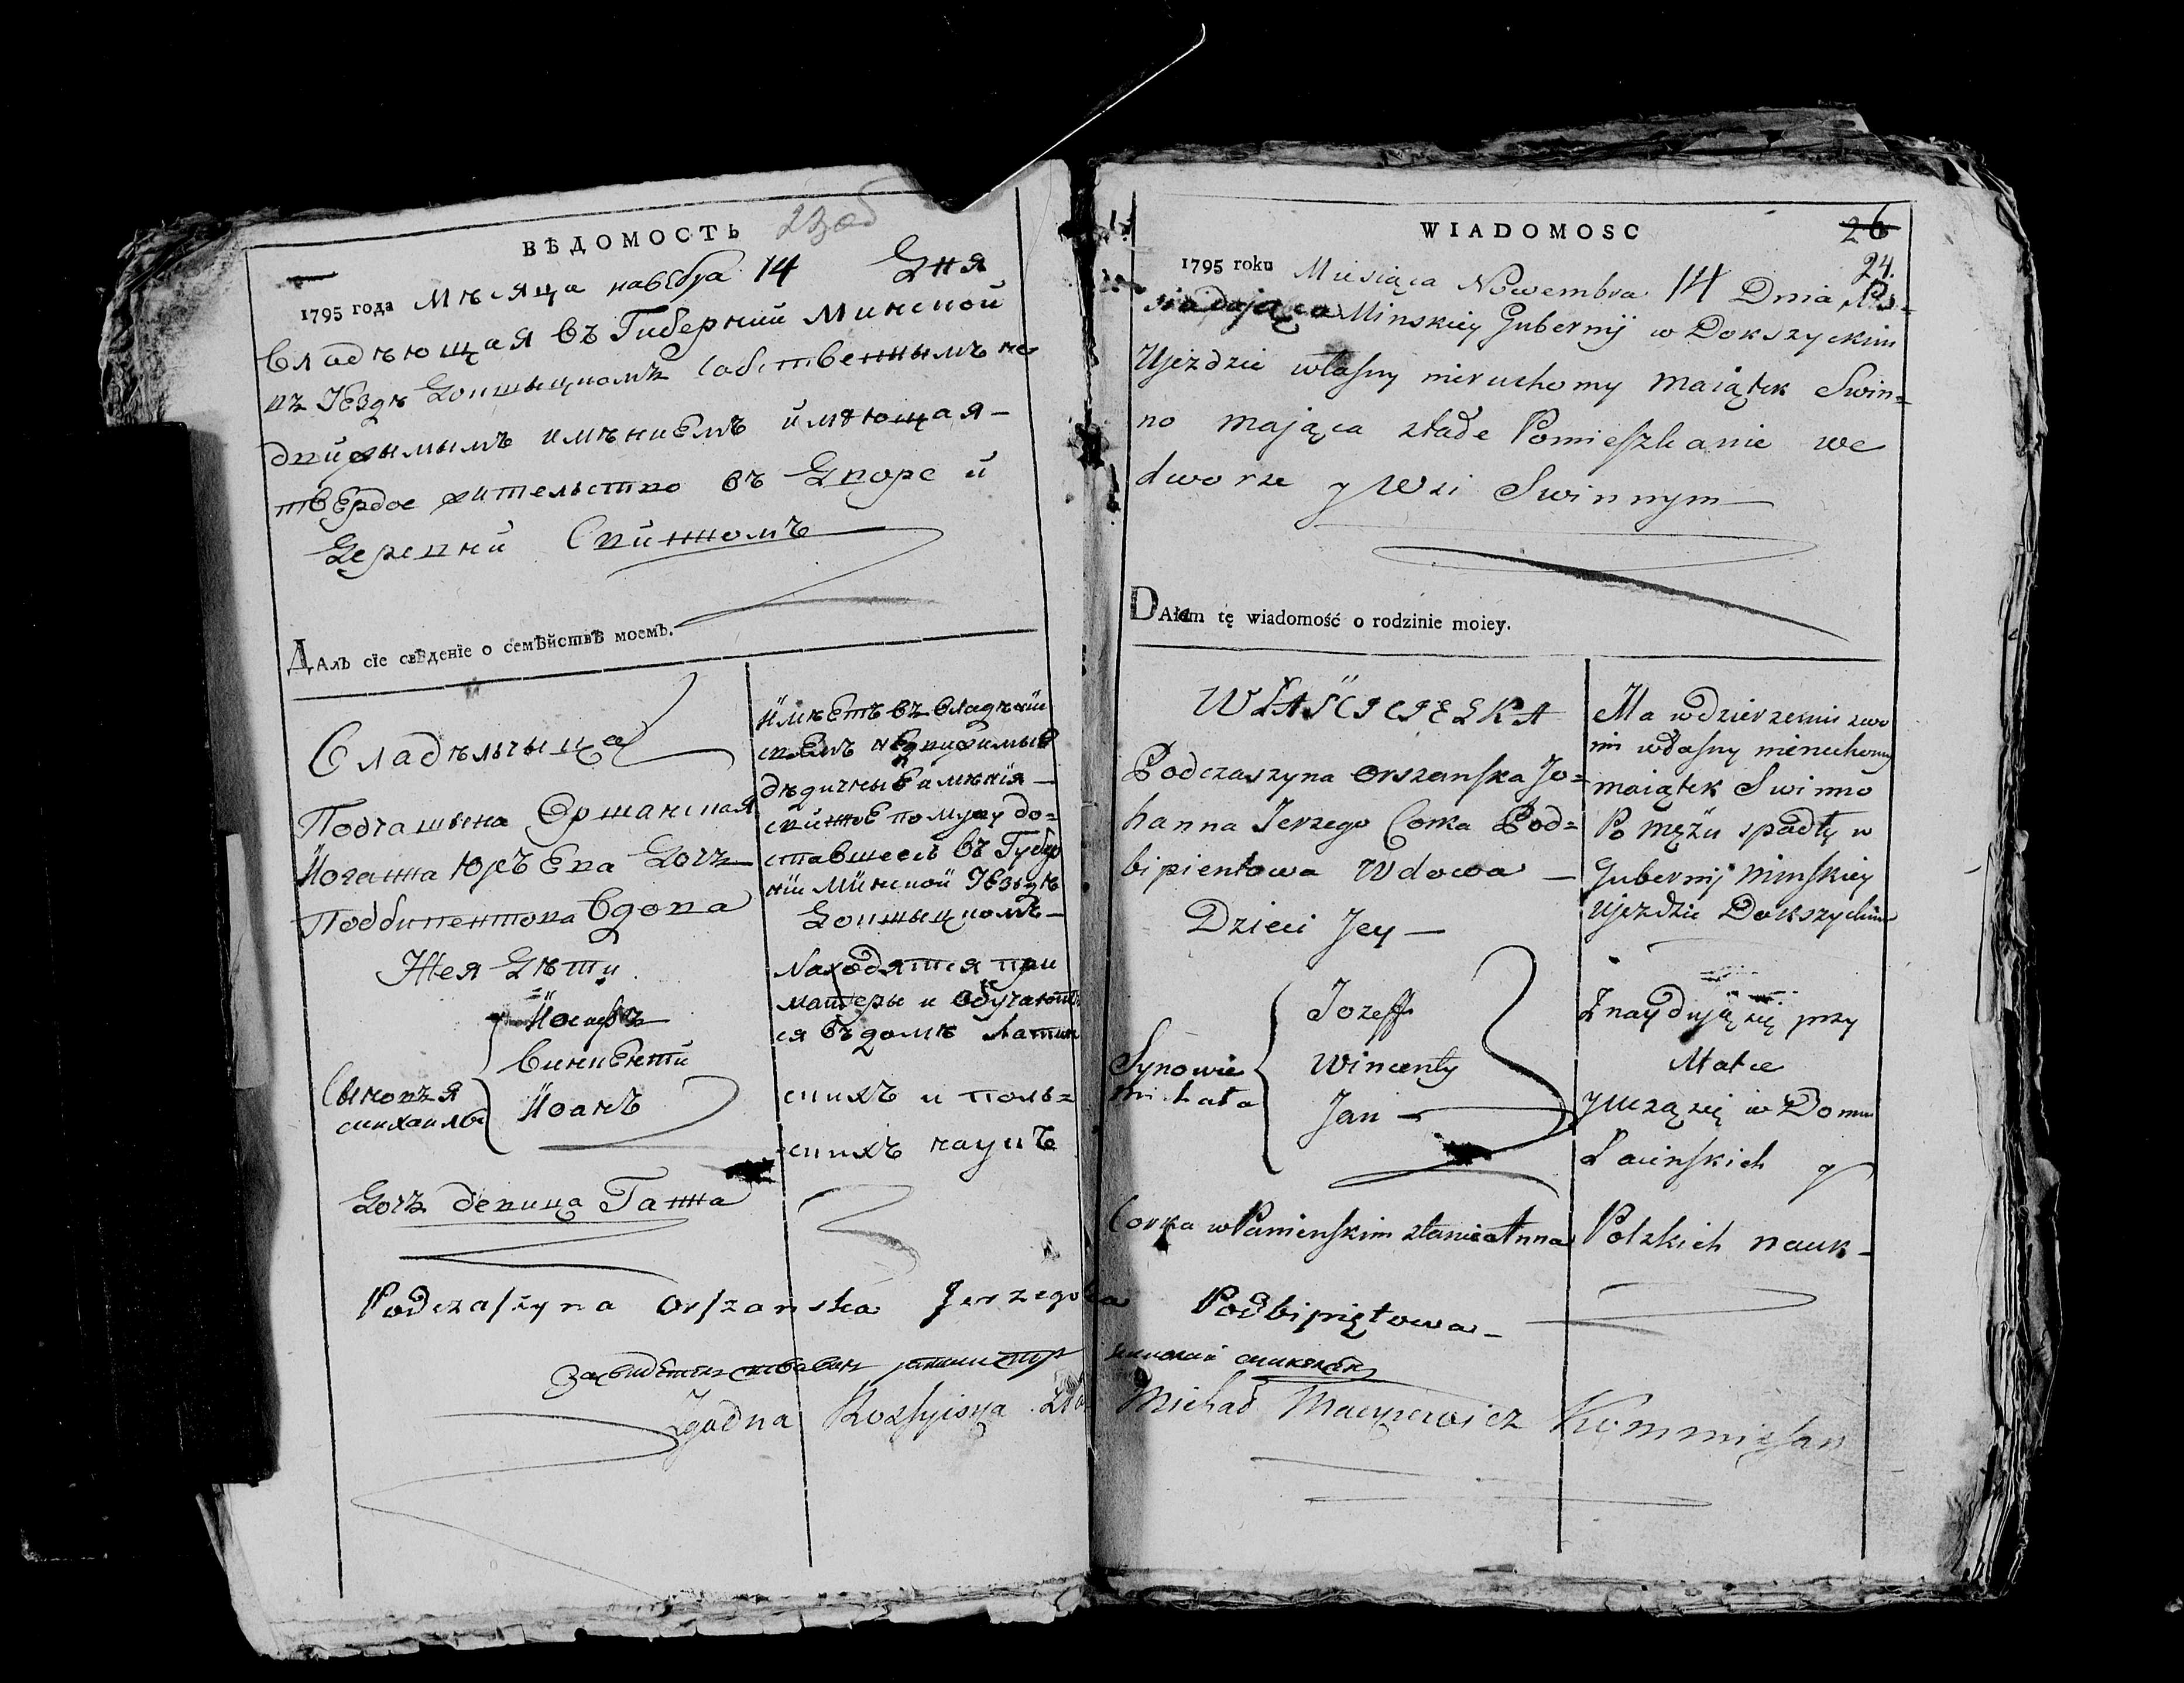 ВѢДОМОСТЬ
1795 года Мѣсяца навебра 14 Дня
владѣющая въ Губерніи Минской
въ Уездѣ Докшыцкомъ собственнымъ не
движымымъ имѣниемъ имѣющая
твердое жительство въ Дворе и
Деревни Свинномъ
ДАлъ сїе свѣденїе о семѣйствѣ моемъ.
Владѣльчыца
Подчашына Оршанская
Йоганна Юръева Дочь
Подбипентова вдова
Ея Дѣти
Сыновья
Михаилъ
Йосифъ
Викентий
Йоанъ
Дочь девица Ганна
имѣетъ въ владѣнїи
своемъ недвижимые
дѣдичные имѣнїя
свинное по мужу до=
ставшееся въ Губер
нїи Минской Уездѣ
Докшыцкомъ
Находятся при
матеры и обучают
ся въ домѣ Латин
скихъ и поль=
скихъ наукъ
WIADOMOSC
26
24.
1795 roku Miesiąca Nowembra 14 Dnia Po=
siadająca Minskiey Gubernij w Dokszyckim
Ujezdzie własny nieruchomy Maiątek Swin=
no mająca stałe Pomieszkanie we
dworze y Wsi Swinnym
DAłam tę wiadomość o rodzinie moiey.
WŁAŚCICIELKA
Podczaszyna Orszanska Jo=
hanna Jerzego Corka Pod=
bipientowa Wdowa
Dzieci Jey
Synowie
Michała
Jozeff
Wincenty
Jan
Corka w Panienskim stanie Anna
Ma w dzierzeniu swo
im własny nieruchomy
maiątek Swinno
Po mężu spadły w
Gubernij Minskiey
Ujezdzie Dokszyckim
Znayduią się przy
Matce
y uczą się w Domu
Łacinskich y
Polskich nauk
Podczaszyna Orszanska Jerzegowa Podbipiętowa
Zgodna Michał Kommissarz